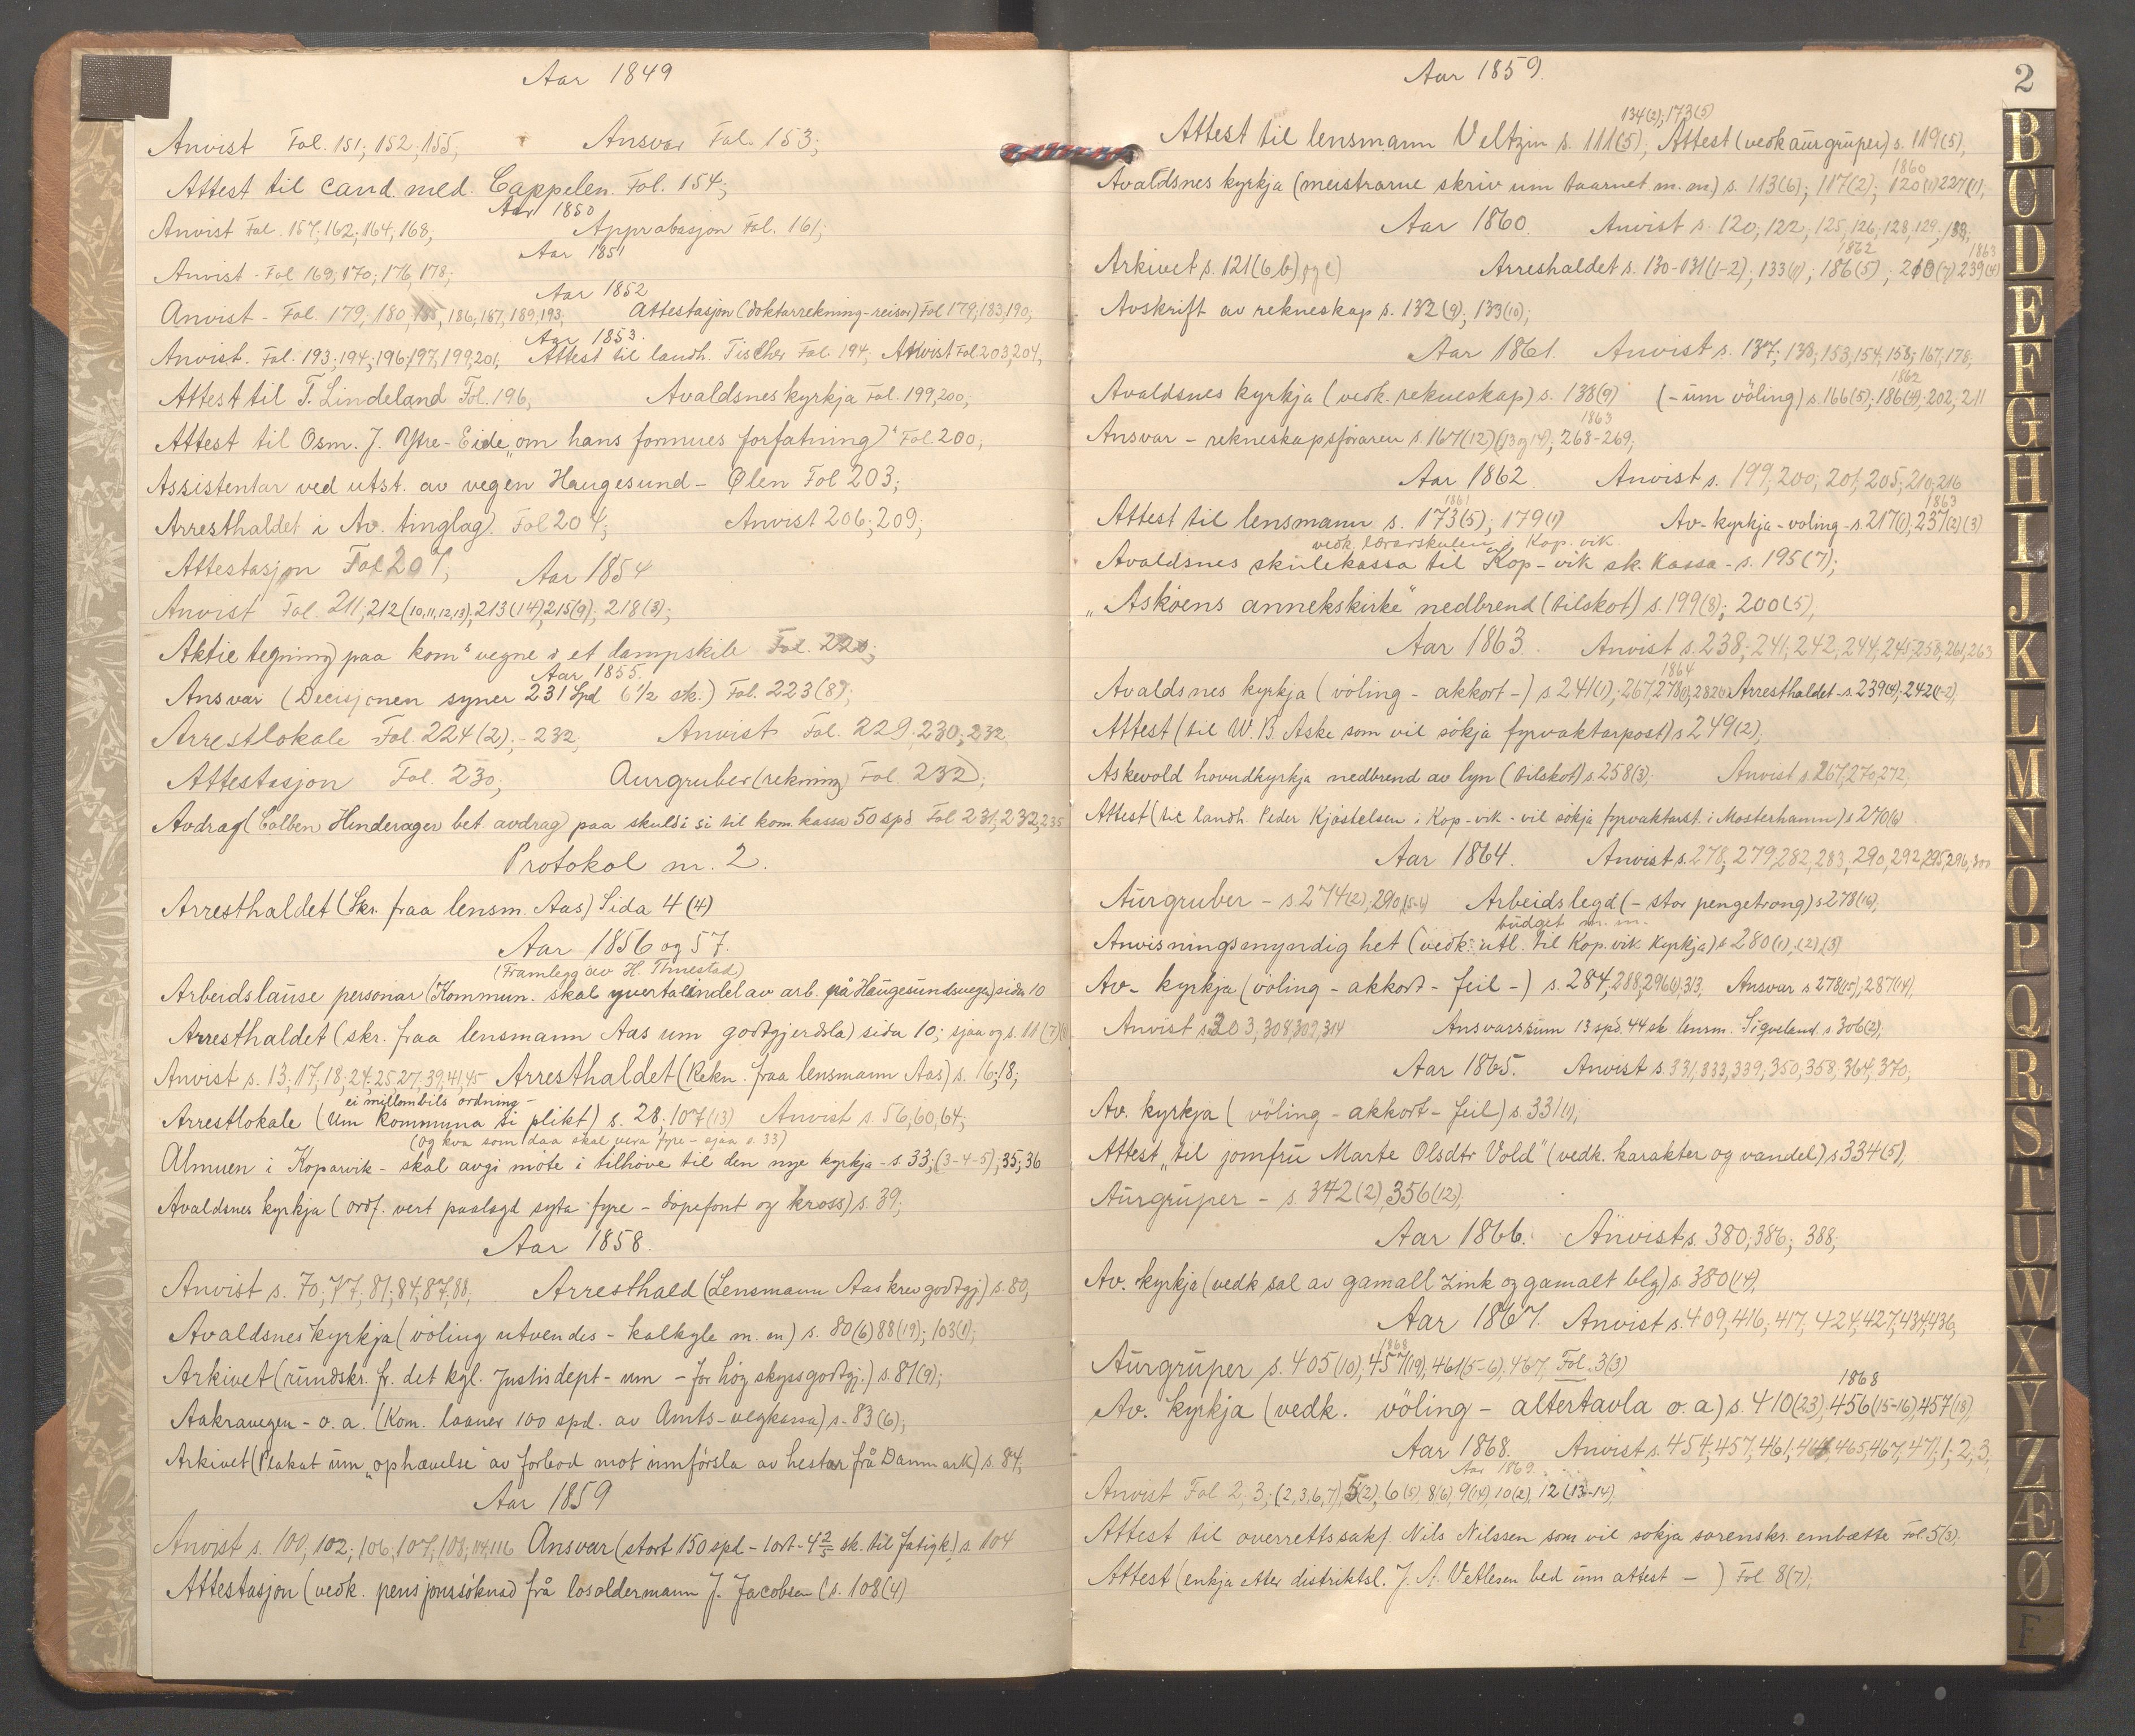 Aar 1849
Anvist Fol. 151; 152; 155; Ansvar Fol. 153;
Attest til cand. med. Cappelen. Fol. 154;
Aar 1850
Anvist Fol. 157, 162; 164, 168; Approbasjon Fol. 161;
Aar 1851
Anvist - Fol 169, 170; 176, 178;
Aar 1852
Anvist - Fol. 179, 180, 185, 186, 187, 189, 193, Attestasjon (doktarrekning-reiser) Fol 179, 183, 190,
Aar 1853.
Anvist. Fol. 193; 194; 196, 197, 199, 201, Attest til landh. Tischer Fol. 194; Anvist Fol 203, 204,
Attest til T. Lindeland Fol. 196, Avaldsnes kyrkja Fol. 199, 200,
Attest til Osm. J. Ytre-Eide „om hans formues forfatning)" Fol. 200,
Assistentar ved utst. av vegen Haugesund - Ølen Fol 203;
Arresthaldet i Av. tinglag). Fol 204; Anvist 206; 209;
Attestasjon Fol 207, Aar 1854
Anvist Fol. 211, 212 (10,11,12,13), 213 (14), 215 (9); 218 (3);
Aktie tegning paa kom.s vegne i et dampskib Fol. 220;
Aar 1855.
Ansvar (Decisjonen syner 231 Spd 6 1/2 sk.) Fol. 223 (8);
Arrestlokale Fol. 224 (2), - 232, Anvist Fol. 229, 230; 232
Attestasjon Fol. 230; Aurgruber (rekning) Fol. 232);
Avdrag (Colben Hinderager bet. avdrag) paa skuld i si til kom. kassa 50 spd Fol 231, 232, 235
Protokol nr. 2.
Arresthaldet (Skr. fraa lensm. Aas) Sida 4 (4)
Aar 1856 og 57.
(Framlegg av H. Thuestad)
Arbeidslause personar (Kommun. skal yvertalindel av arb. på Haugesundsvegen) sida 10
Arresthaldet (skr. fraa lensmann Aas um godtgjerdsla) sida 10; sjaa og s. 11 (7)
Anvist s. 13; 17, 18, 24, 25, 27, 39, 41, 45 Arresthaldet (Rekn. fraa lensmann Aas) s. 16; 18;
ei millombils ordning -
Arrestlokale (um kommuna si plikt) s. 28; 107 (13) Anvist s. 56, 60, 64;
(og kva som daa skal vera fyre - sjaa s. 33)
Almuen i Koparvik - skal avgi møte i tilhøve til den nye kyrkja - s. 33; (3-4-5), 35; 36
Avaldsnes kyrkja (ordf. vert paalagd syta fyre - døpefont og kross) s. 39;
Aar 1858.
Anvist s. 70, 77, 81; 84, 87, 88, Arresthald (Lensmann Aas krev godtgj.) s. 80,
Avaldsnes kyrkja (vøling utvendes - kalkyle m. m) s. 80 (6) 88 (19); 103 (1);
Arkivet (rundskr. fr. det kgl. Justisdept - um - for høg skyssgodtgj.) s. 81 (9);
Aakravegen - o. a. (Kom. laaner 100 spd. av Amts-vegkassa) s. 83 (6);
Arkivet (Plakat um „ophævelse" av forbod mot innførsla av hestar frå Danmark) s. 84,
Aar 1859
Anvist s. 100, 102; 106, 107, 108, 114, 116 Ansvar (stort 150 spd - 1 ort - 4 2/5 sk. til fatigk.) s. 104
Attestasjon (vedk. pensjonssøknad frå losoldermann J. Jacobsen (s. 108 (4)
Aar 1859.
2
134 (2); 173 (5)
Attest til lensmann Veltzin s. 111 (5); Attest (vedk aurgruper) s. 119 (5),
1860
Avaldsnes kyrkja (meistrarne skriv um taarnet m. m) s. 113 (6); 117 (2); 120 (1) 227 (1);
Aar 1860. Anvist s. 120, 122, 125, 126, 128, 129,
1862 1863
Arkivet s. 121 (6,b) Arresthaldet s. 130-131 (1-2); 133 (11); 186 (5); 210 (7) 239 (4)
Avskrift av rekneskap s. 132 (9); 133 (10);
Aar 1861. Anvist s. 137; 138; 153, 154, 158; 167, 178,
1862
Avaldsnes kyrkja (vedk. rekneskap) s. 138 (9) (- um vøling) s. 166 (5); 186 (4); 202, 211
1863
Ansvar - rekneskapsføraren s. 167 (12) (13 og 14); 268-269;
Aar 1862. Anvist s. 199; 200; 201, 205; 210; 216
1861 1863
Attest til lensmann s. 173 (5); 179 (1) Av- kyrkja - vøling - s. 217 (1); 237 (2) (3)
vedk. lærarskulen i Kop. vik.
Avaldsnes skulekassa til Kop-vik sk. kassa - s. 195 (7);
„Askøens annekskirke" nedbrend (tilskot) s. 199 (8); 200 (5),
Aar 1863. Anvist s. 238; 241; 242, 244, 245, 258, 261, 263
1864
Avaldsnes kyrkja (vøling - akkort -) s 241 (1); 267, 278 (1), 282 (1) Arresthaldet - s. 239 (4); 242 (1-2),
Attest (til W. B. Aske som vil søkja fyrvaktarpost) s 249 (2),
Askevold hovudkyrkja nedbrend av lyn (tilskot) s. 258 (3); Anvist s. 267, 270, 272,
Attest (til landh. Peder Kjøstelsen i Kop-vik - vil søkja fyrvaktarst. i Mosterhamn) s 270 (6)
Aar 1864. Anvist s. 278; 279, 282, 283, 290, 292, 295, 296, 300
Aurgruber - s. 274 (12), 290 (5-6) Arbeidslegd (- stor pengetrong) s 278 (16),
budget m. m.
Anvisningsmyndighet (vedk. utl. til Kop. vik kyrkja) s 280 (1), (2), (3)
Av- kyrkja (vøling - akkort - feil -) s. 284, 288, 296 (1), 313, Ansvar s 278 (15), 287 (14),
Anvist s. 303, 308, 309, 314 Ansvarssum 13 spd. 44 sk lensm. Sigveland. s 306 (2),
Aar 1865. Anvist s. 331, 333, 339, 350, 358, 364, 370,
Av. kyrkja (vøling - akkort - feil) s. 331 (1),
Attest „til jomfru Marte Olsdtr Vold" (vedk. karakter og vandel) s 334 (5),
Aurgruper - s. 342 (2), 356 (12),
Aar 1866. Anvist s. 380; 386; 388;
Av. kyrkja (vedk. sal av gamall zink og gamalt bly) s. 380 (14),
Aar 1867. Anvist s. 409, 416; 417, 424, 427, 434, 436,
1868
Aurgruper s. 405 (10), 457 (19), 461 (5-6), 467, Fol. 3 (3)
1868
Av. kyrkja (vedk. vøling - altertavla o. a) s. 410 (23), 456 (15-16), 457 (18)
Aar 1868. Anvist s. 454, 457, 461, 464, 465, 467, 471, 1; 2; 3,
Aar 1869.
Anvist Fol 2, 3; (2, 3, 6, 7) 5 (2), 6 (5) 8 (6), 9 (14), 10 (2), 12 (13-14),
Attest til overrettssakf. Nils Nilssen som vil søkja sorenskr. embætte Fol. 5 (3),
Attest (enkja etter distriktsl. J. A. Vetlesen bed um attest - ) Fol 8 (7);
B
C
D
E
F
G
H
I
J
K
L
M
N
O
P
Q
R
S
T
U
W
X
Y
Z
Æ
Ø
F